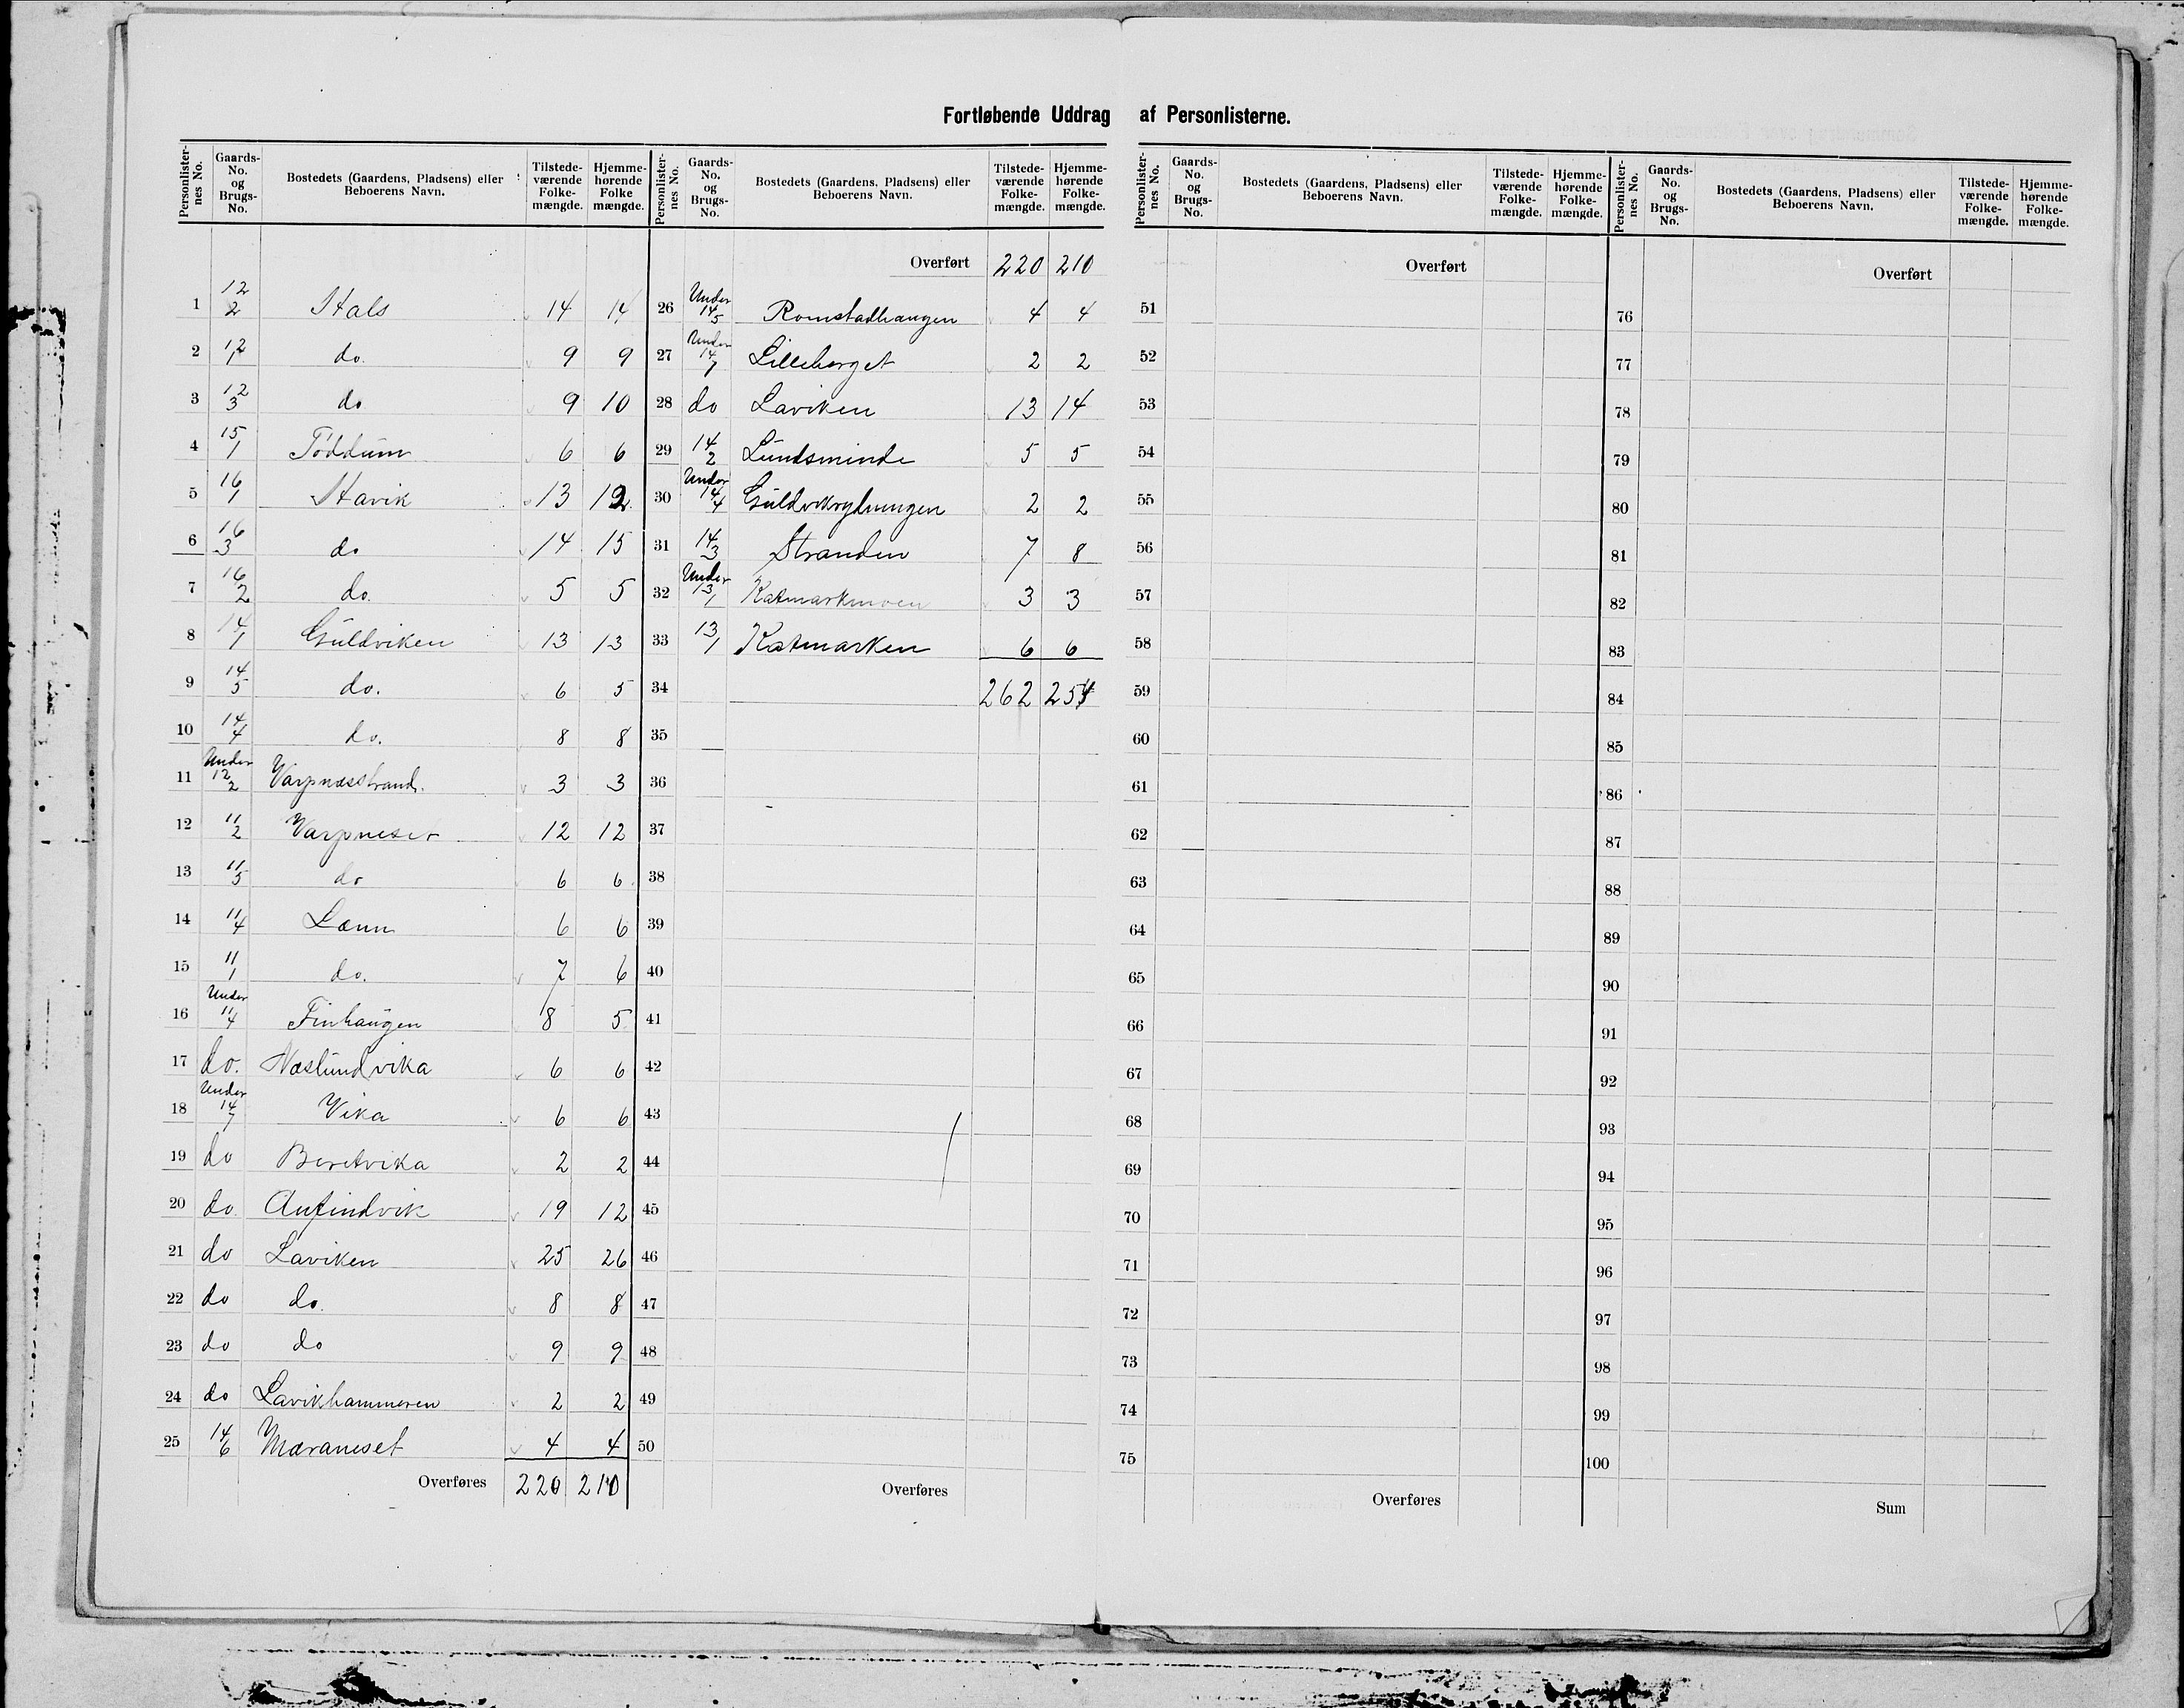 Fortløbende Uddrag af Personlisterne.
Personlisternes No. Gaards-No. og Brugs-No. Bostedets (Gaardens, Pladsens) eller Beboerens Navn. Tilstedeværende Folkemængde. Hjemmehørende Folkemængde.
1 12/2 Stals 14 14
2 12/1 do. 9 9
3 12/3 do 9 10
4 15/1 Töddum 6 6
5 16/1 Stavik 13 12
6 16/3 do 14 15
7 16/2 do. 5 5
8 14/1 Guldviken 13 13
9 14/5 do. 6 5
10 14/4 do. 8 8
11 Under 12/2 Varpnæsstrand. 3 3
12 11/2 Varpneset 12 12
13 11/5 do 6 6
14 11/4 Lænn 6 6
15 11/1 do. 7 6
16 Under 11/4 Finhaugen 8 5
17 do. Næslundvika 6 6
18 Under 14/7 Vika 6 6
19 do Beretvika 2 2
20 do Anfindvik 19 12
21 do Laviken 25 26
22 do do. 8 8
23 do do 9 9
24 do Lavikhammeren 2 2
25 14/6 Mæraneset 4 4
Overføres 220 210
Personlisternes No. Gaards-No. og Brugs-No. Bostedets (Gaardens, Pladsens) eller Beboerens Navn. Tilstedeværende Folkemængde. Hjemmehørende Folkemængde.
Overført 220 210
26 Under 14/5 Romstadhaugen 4 4
27 Under 14/7 Lilleberget 2 2
28 do Laviken 13 14
29 14/2 Lundsminde 5 5
30 Under 14/4 Guldvikrydningen 2 2
31 14/3 Stranden 7 8
32 Under 13/1 Katmarkmoen 3 3
33 13/1 Katmarken 6 6
34 262 254
35
36
37
38
39
40
41
42
43
44
45
46
47
48
49
50
Overføres
Personlisternes No. Gaards-No. og Brugs-No. Bostedets (Gaardens, Pladsens) eller Beboerens Navn. Tilstedeværende Folkemængde. Hjemmehørende Folkemængde.
Overført
51
52
53
54
55
56
57
58
59
60
61
62
63
64
65
66
67
68
69
70
71
72
73
74
75
Overføres
Personlisternes No. Gaards-No. og Brugs-No. Bostedets (Gaardens, Pladsens) eller Beboerens Navn. Tilstedeværende Folkemængde. Hjemmehørende Folkemængde.
Overført
76
77
78
79
80
81
82
83
84
85
86
87
88
89
90
91
92
93
94
95
96
97
98
99
100
Sum